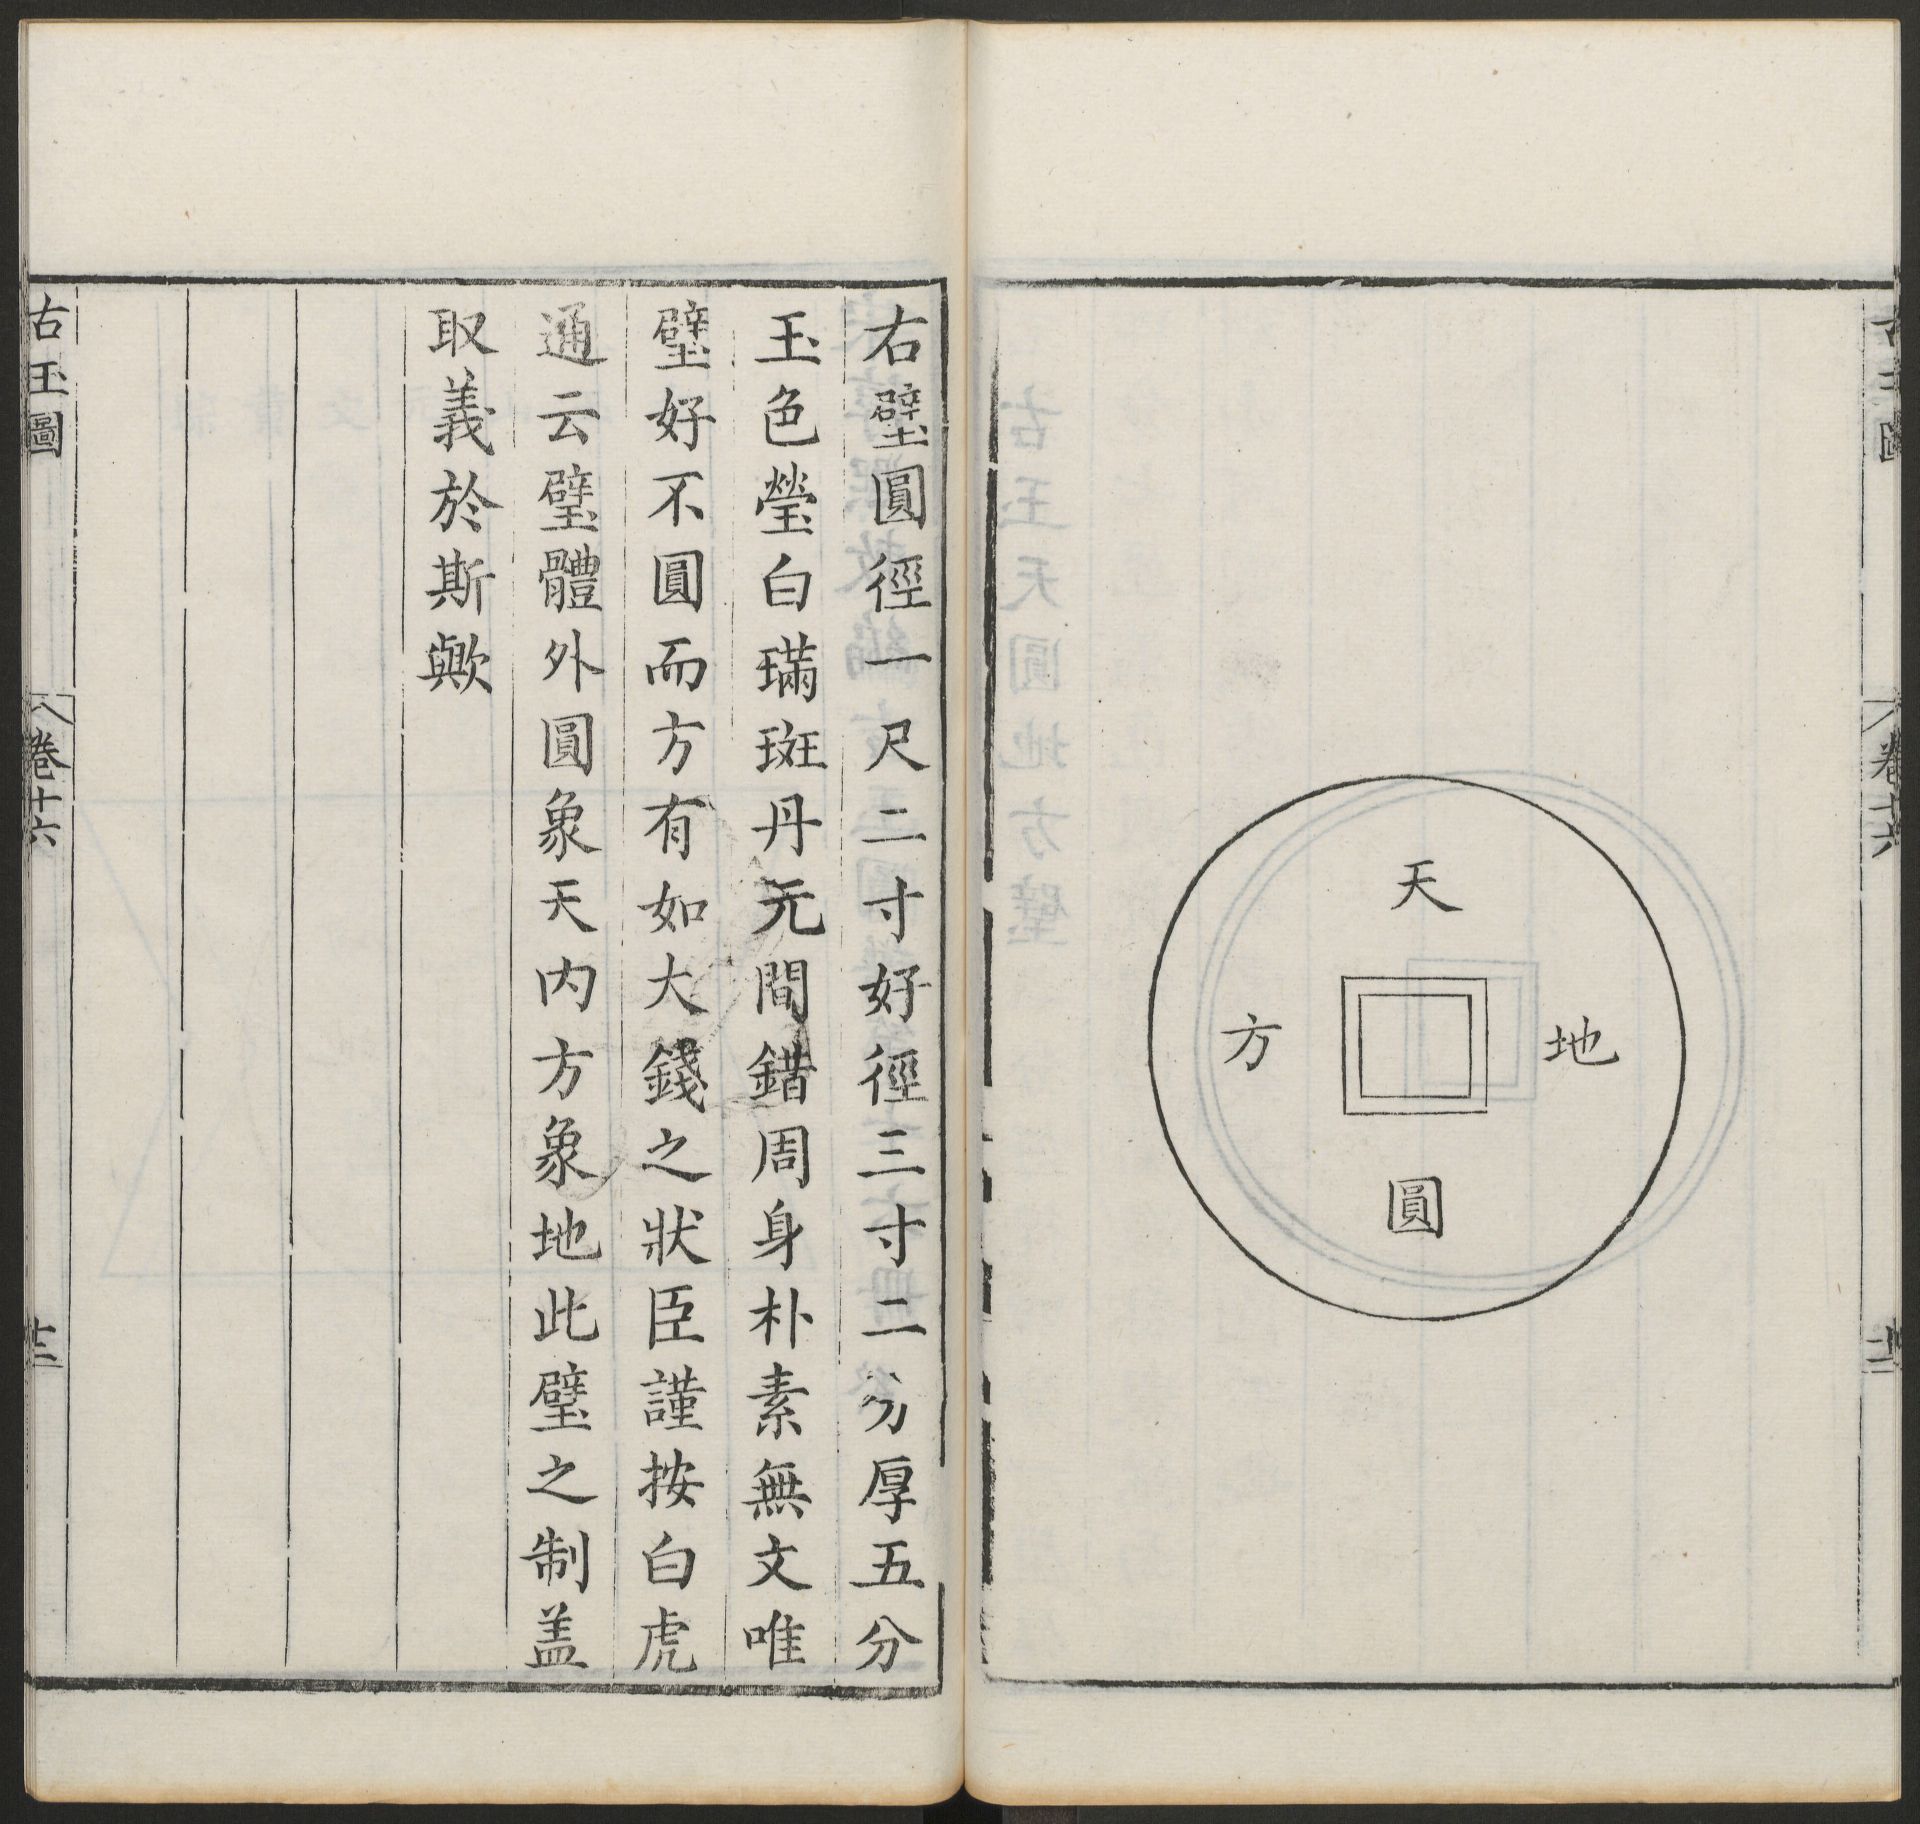 古玉圖
卷十六
十二
天
圓
地
方
右璧圓徑一尺二寸好徑三寸二分厚五分
玉色瑩白璊斑丹无間錯周身朴素無文唯
璧好不圓而方有如大錢之狀臣謹按白虎
通云璧體外圓象天内方象地此璧之制盖
取義於斯歟
古玉圖
卷十六
十三